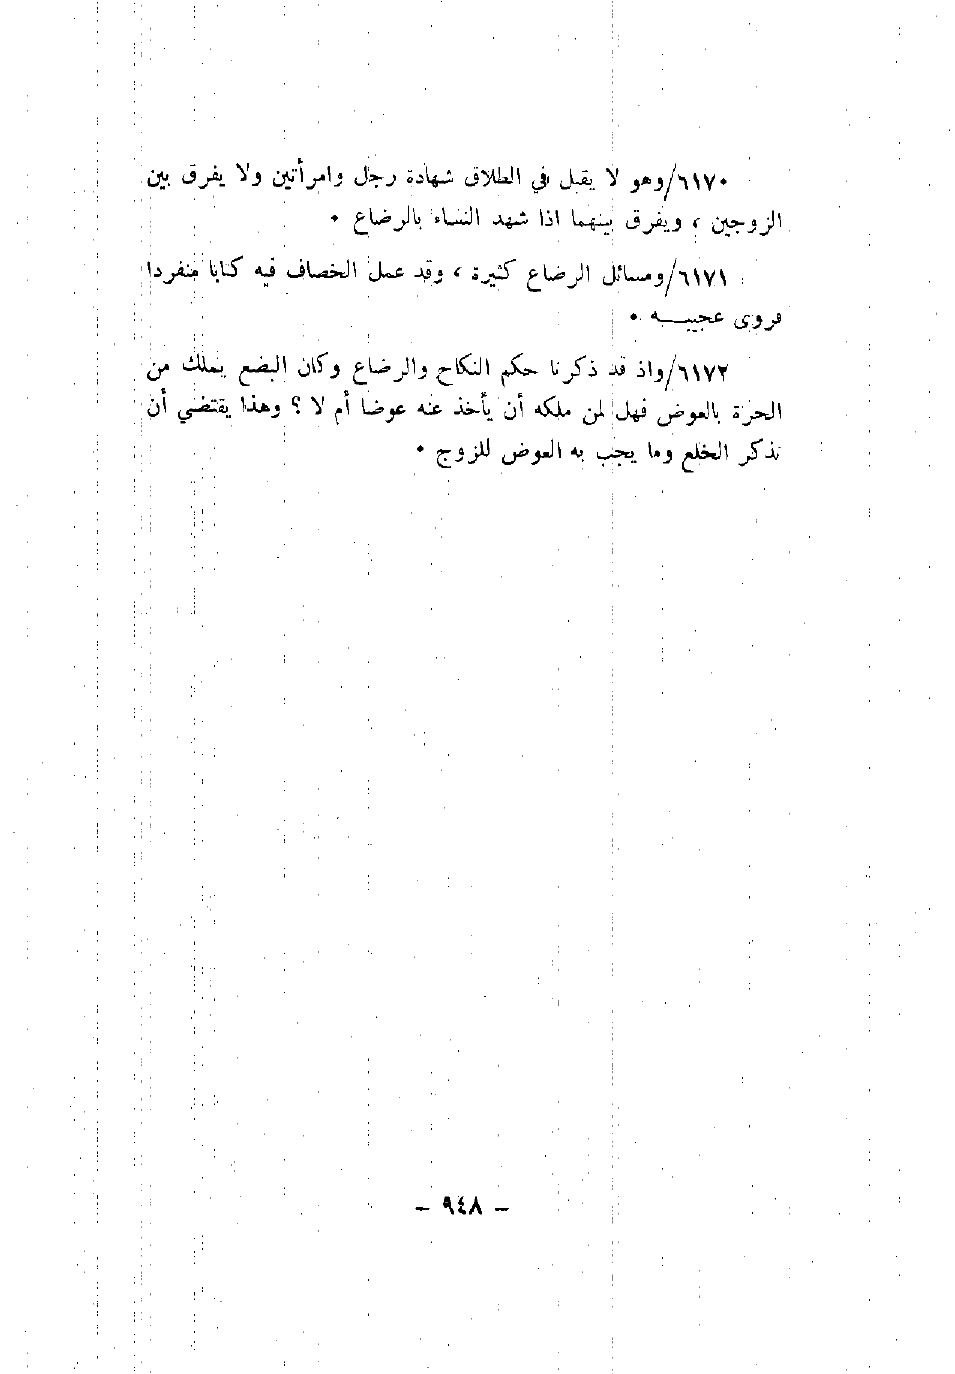 ٦١٧٠/وهو لا يقبل في الطلاق شهادة رجل وامرأتين ولا يفرق بين
الزوجين ، ويفرق بينهما اذا شهد النساء بالرضاع ٠
٦١٧١/ومسائل الرضاع كثيرة ، وقد عمل الخصاف فيه كتابا منفردا
فروى عجيبــه ٠
٦١٧٢/واذ قد ذكرنا حكم النكاح والرضاع وكان البضع يملك من
الحرة بالعوض فهل لمن ملكه أن يأخذ عنه عوضا أم لا ؟ وهذا يقتضي أن
نذكر الخلع وما يجب به العوض للزوج ٠
– ٩٤٨ –